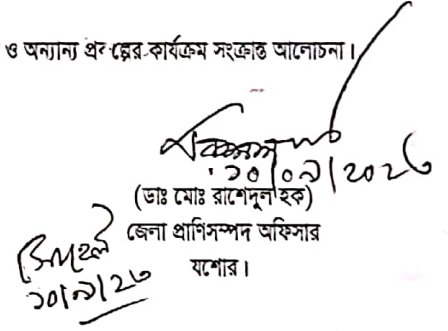 ও অন্যান্য প্রকল্পের কার্যক্রম সংক্রান্ত আলোচনা।
১০/০৯/২০২৩
(ডাঃ মোঃ রাশেদুল হক)
জেলা প্রাণিসম্পদ অফিসার
যশোর।
১০/৯/২৩